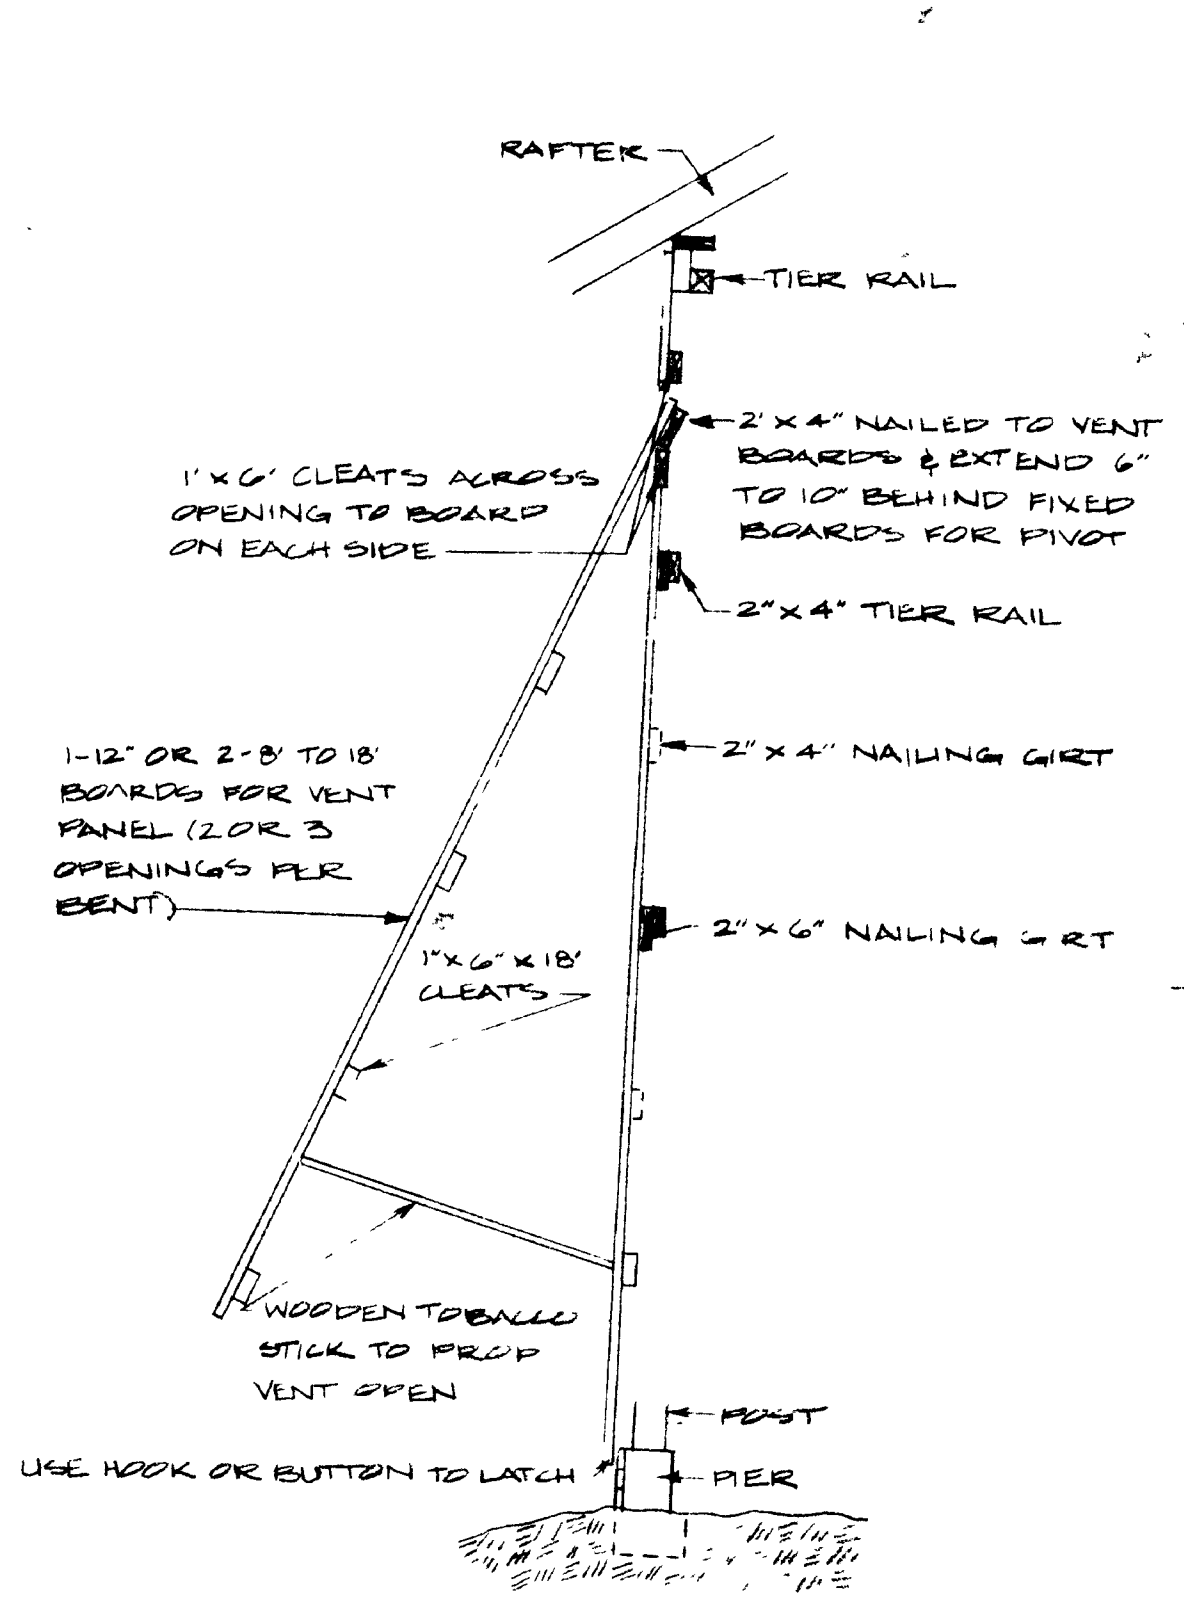 RAFTER
TIER RAIL
2' X 4" NAILED TO VENT
BOARDS & EXTEND 6"
TO 10" BEHIND FIXED
BOARDS FOR PIVOT
1' X 6' CLEATS ACROSS
OPENING TO BOARD
ON EACH SIDE
2" X 4" TIER RAIL
2" X 4" NAILING GIRT
1-12" OR 2-8' TO 18'
BOARDS FOR VENT
PANEL (2 OR 3
OPENINGS PER
BENT)
2" X 6" NAILING G RT
1" X 6" X 18'
CLEATS
WOODEN TOBACCO
STICK TO PROP
VENT OPEN
POST
USE HOOK OR BUTTON TO LATCH
PIER